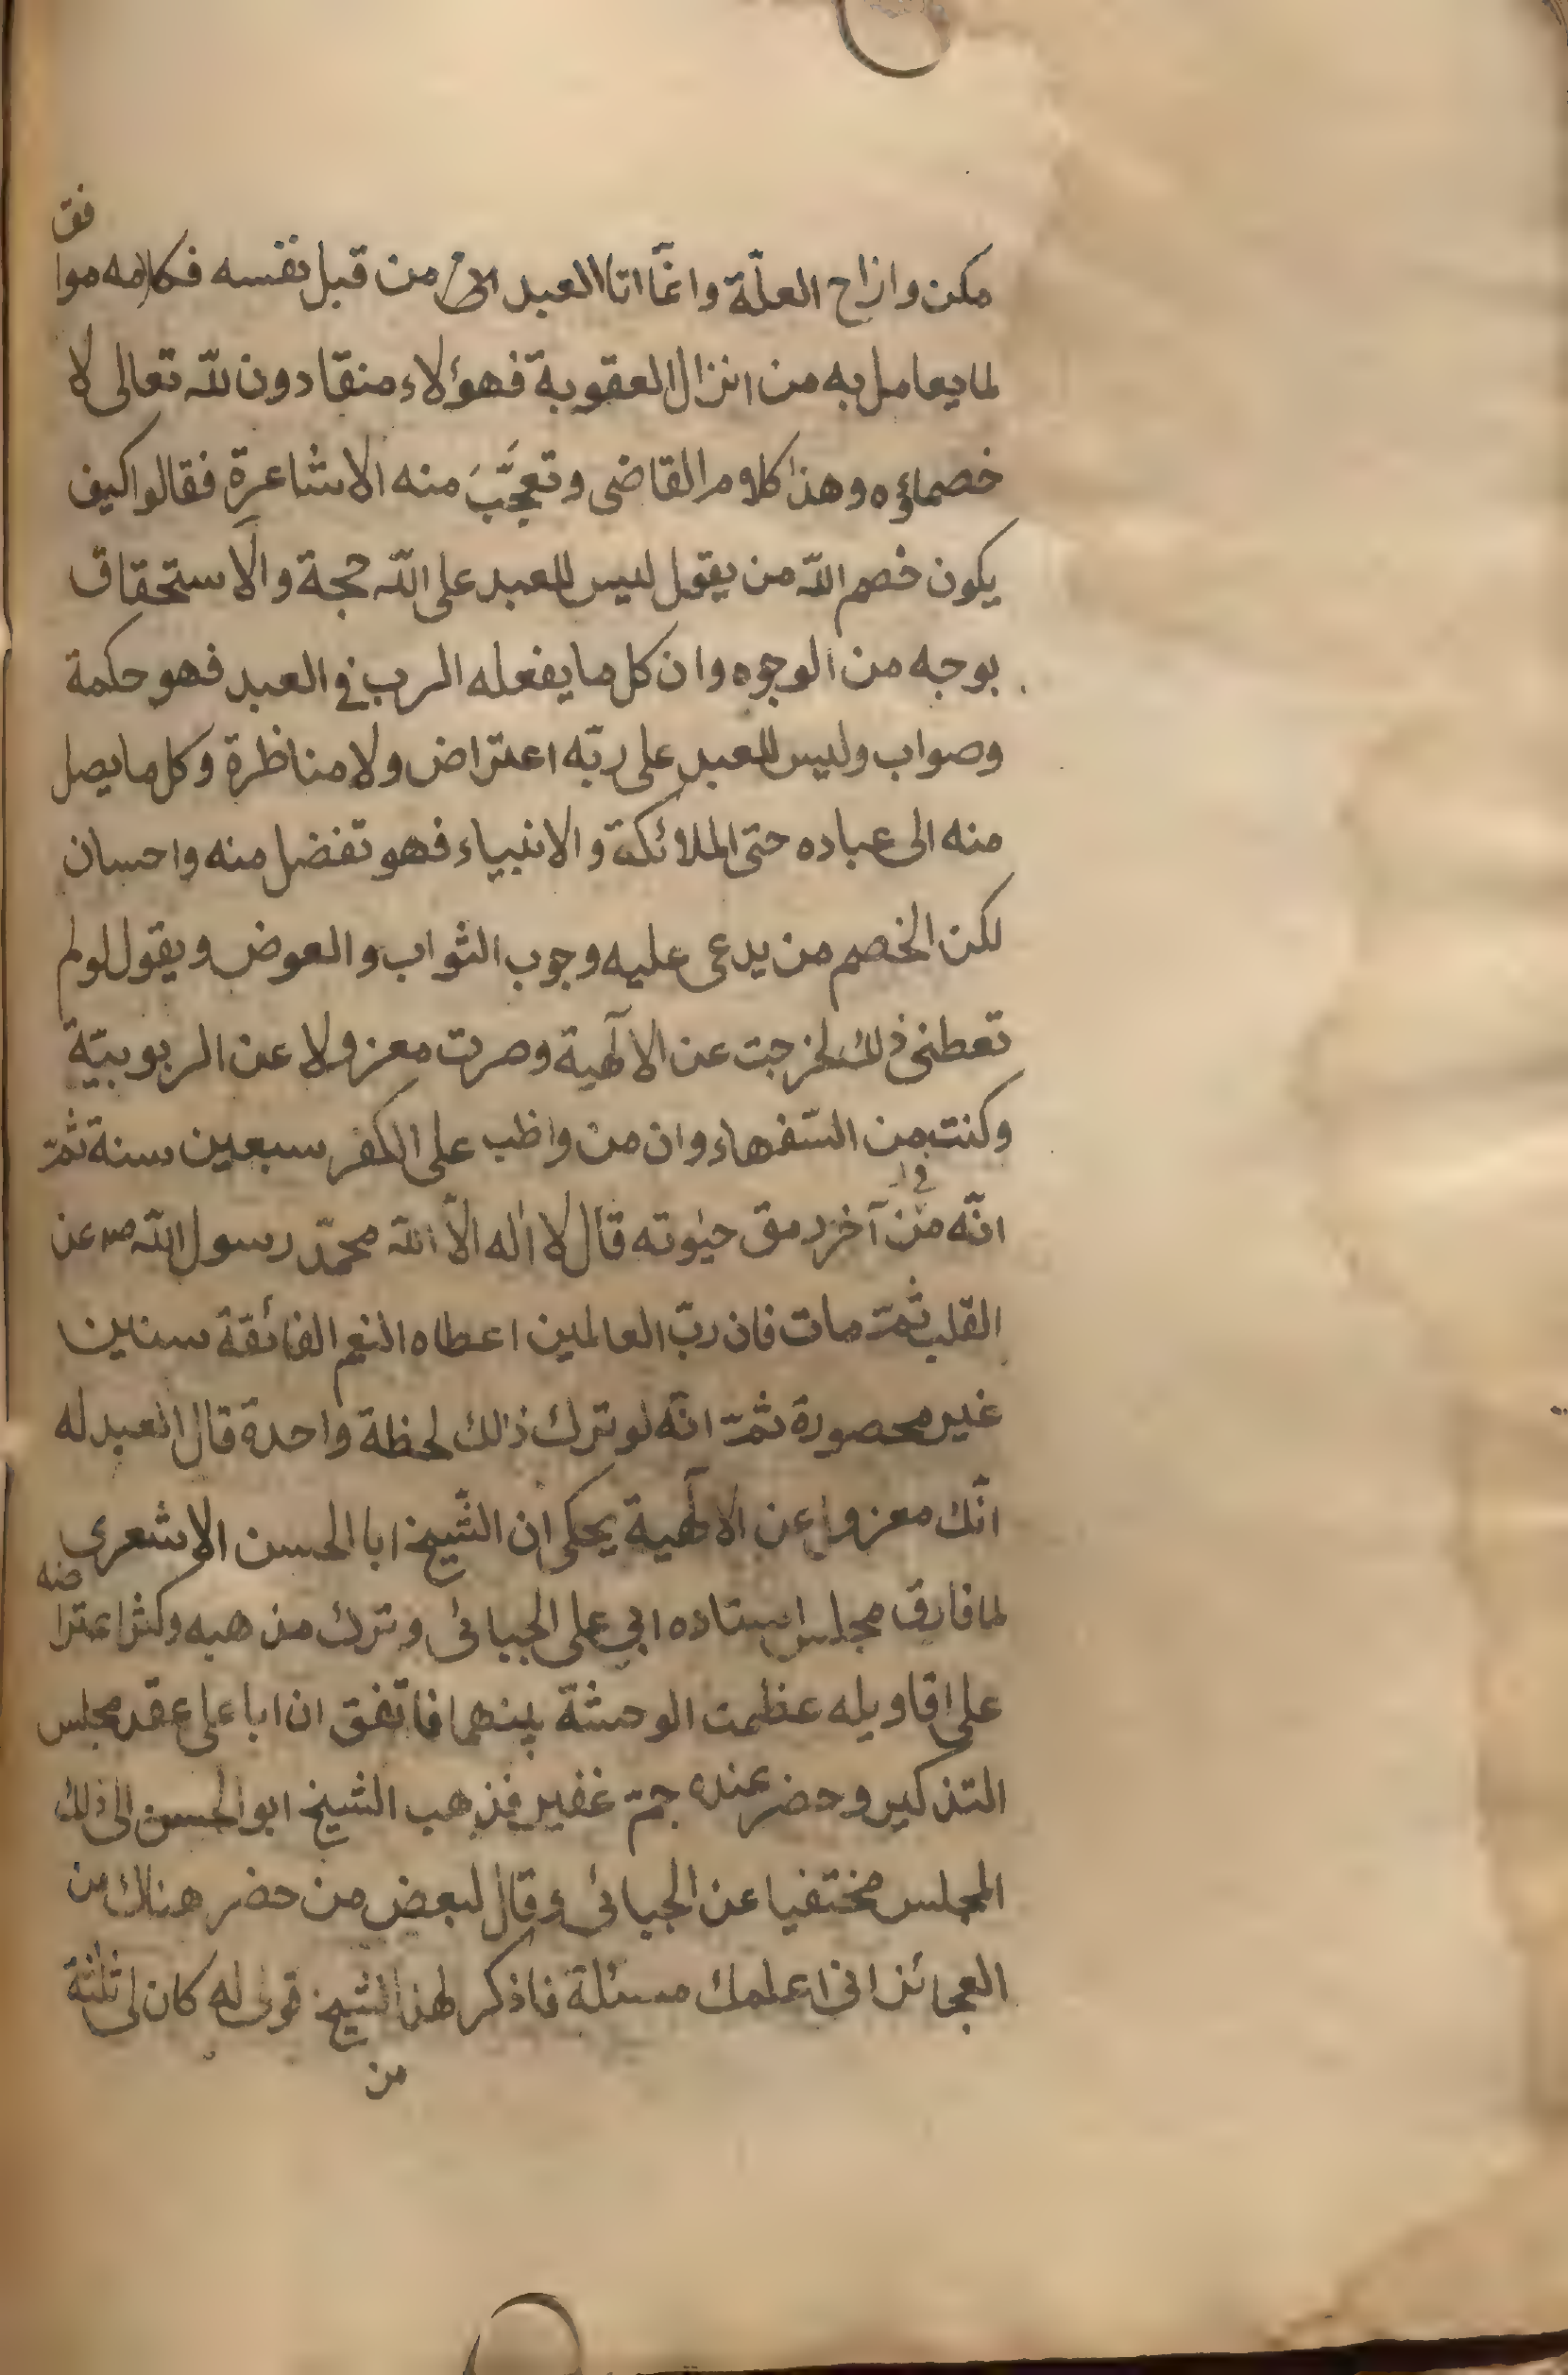 مكن وازاح العلّة وانمّا اتا العبد من قبل نفسه فكلامه موافق
لما يعامل به من انزال العقوبة فهؤلاء منقادون للّه تعالى لا
خصماؤه وهذا كلام القاضى وتعجَّبَ منه الاشاعرة فقالوا كيف
يكون خصم اللّه من يقول ليس للعبد على اللّه حجة والاستحقاق
بوجه من الوجوه وان كل ما يفعله الرب فى العبد فهو حكمة
وصواب وليس للعبد على ربّه اعتراض ولا مناظرة وكل ما يصل
منه الى عباده حتى الملائكة والانبياء فهو تفضل منه واحسان
لكن الخصم من يدعى عليه وجوب الثواب والعوض ويقول لو لم
تعطنى ذلك لخرجت عن الالٓهية وصرت معزولا عن الربوبيّة
وكنت من السّفهاء وان من واظب على الكفر سبعين سنة ثمّ
انّه من آخر رمق حيٰوته قال لا اله الاّ اللّه محمّد رسول اللّه صہ عن
القلب ثمّ مات فان ربّ العالمين اعطاه النعم الفائقة سنين
غير محصورة ثمّ انّه لو ترك ذالك لحظة واحدة قال العبد له
انّك معزول عن الالٓهية يحكى ان الشّيخ ابا الحسن الاشعرى
لما فارق مجلس استاده ابي على الجبائى وترك مذهبه وكثر اعتراضه
على اقاويله عظمت الوحشة بينهما فاتفق ان ابا على عقد مجلس
التذكير وحضر عنده جمّ غفير فذهب الشيخ ابو الحسن الى ذلك
المجلس مختفيا عن الجبائى وقال لبعض من حضر هناك من
العجائز انى اعلمك مسئلة فاذكر لهذا الشيخ قولى له كان لى ثلثة
من